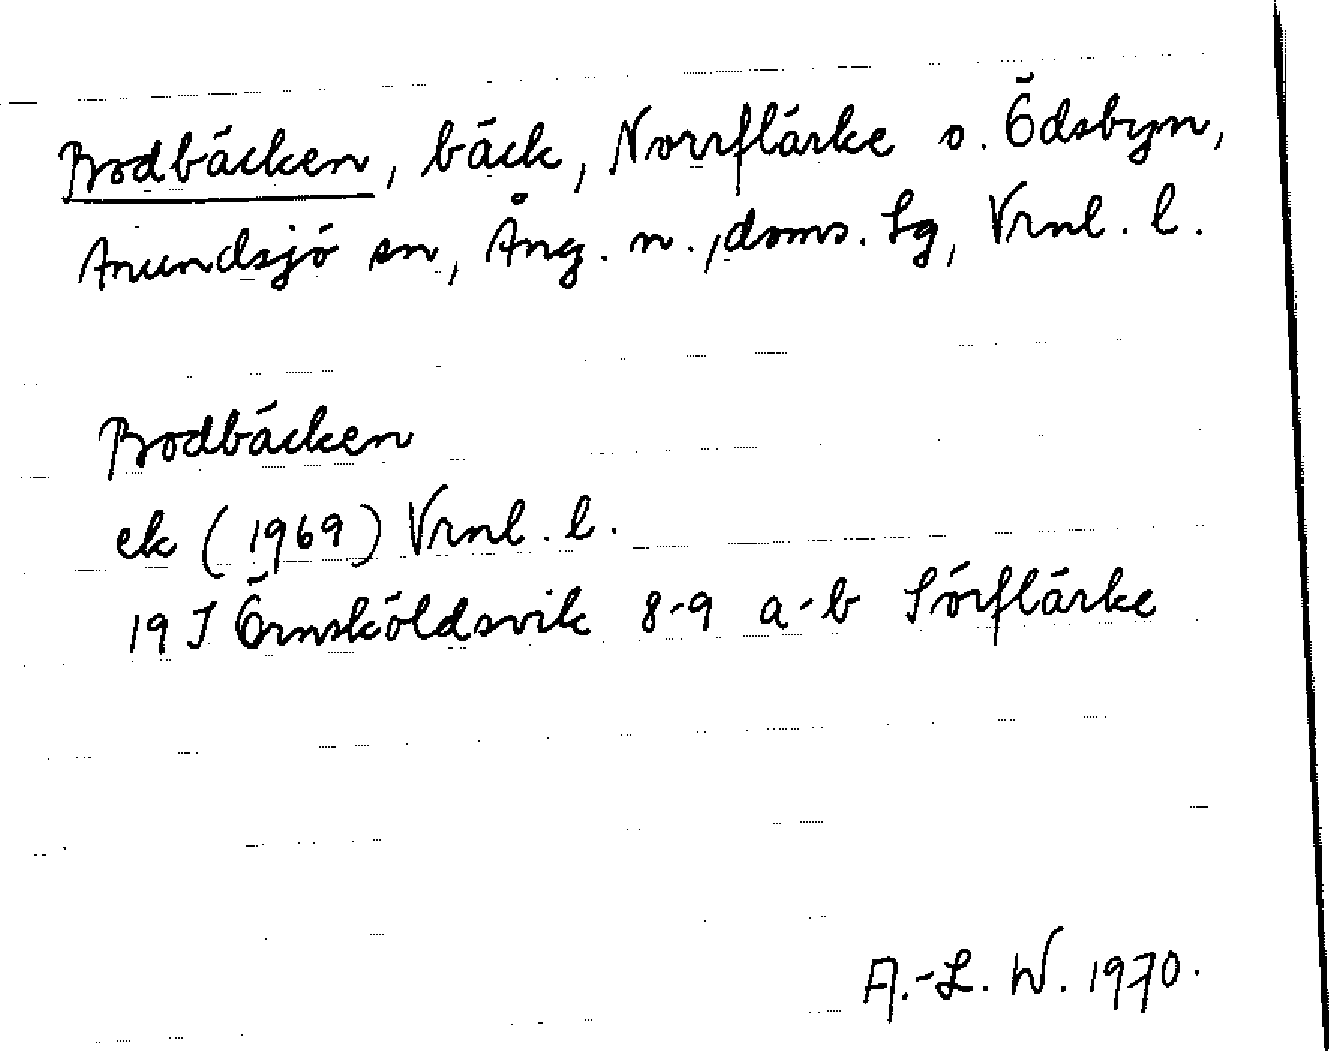 Bodbäcken, bäck, Norrflärke o. Ödsbyn,
Anundsjö sn, Ång. n., doms. lg, Vrnl. l.
Bodbäcken
ek (1969) Vrnl. l.
19 J Örnsköldsvik 8-9 a-b Sörflärke
A.-L. W. 1970.